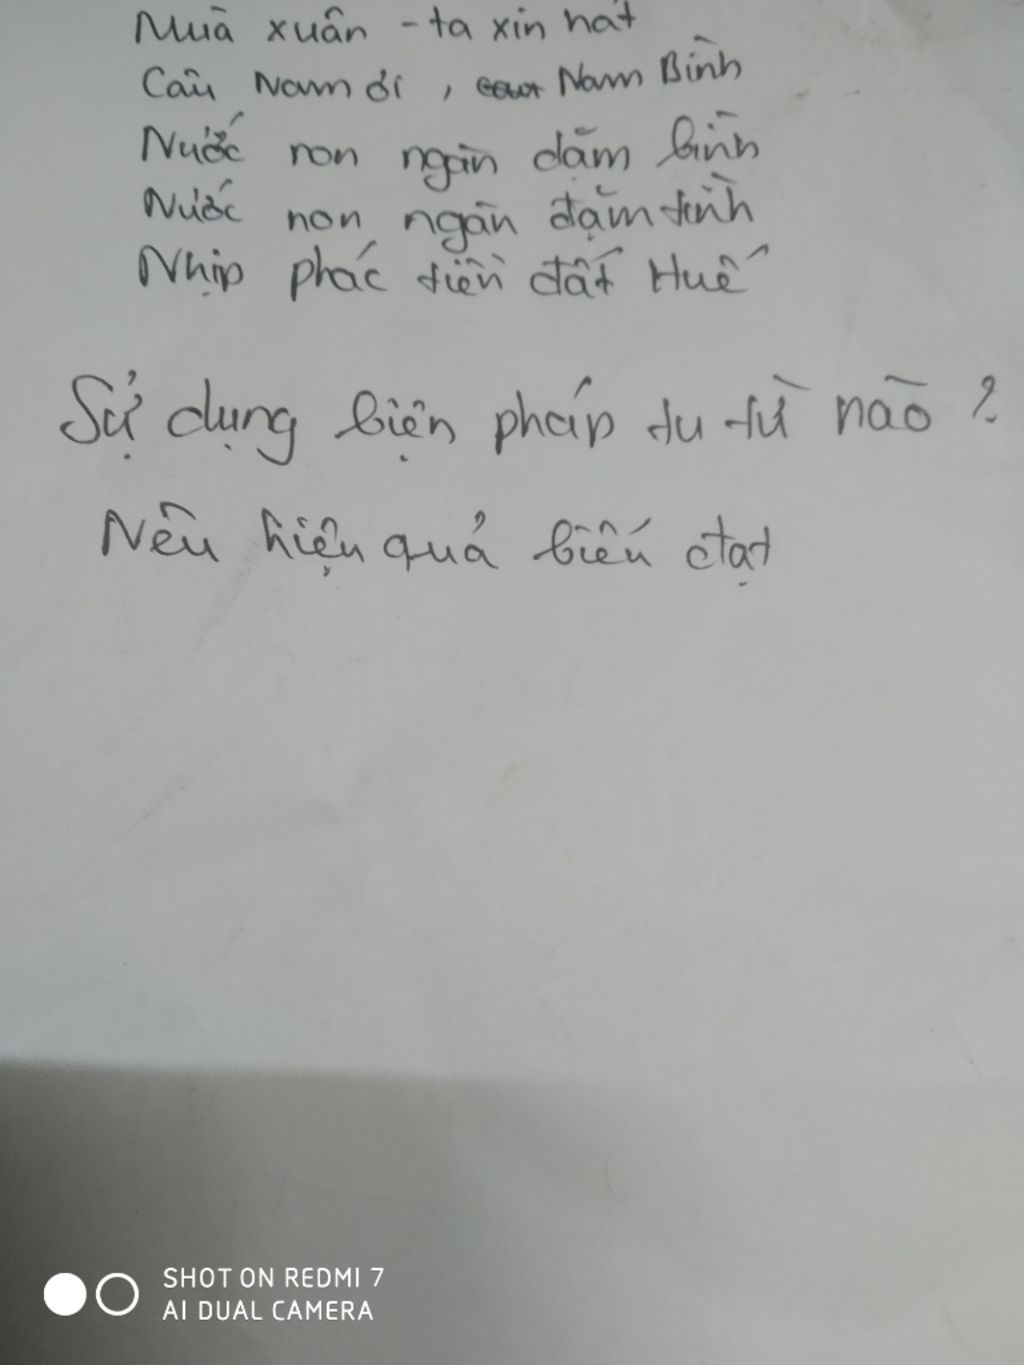 Mùa xuân - ta xin hát
Câu Nam ơi, Nam Bình
Nước non ngàn dặm bình
Nước non ngàn dặm tình
Nhịp phác tiền đất Huế
Sử dụng biện pháp tu từ nào?
Nêu hiệu quả biểu đạt
SHOT ON REDMI 7
AI DUAL CAMERA